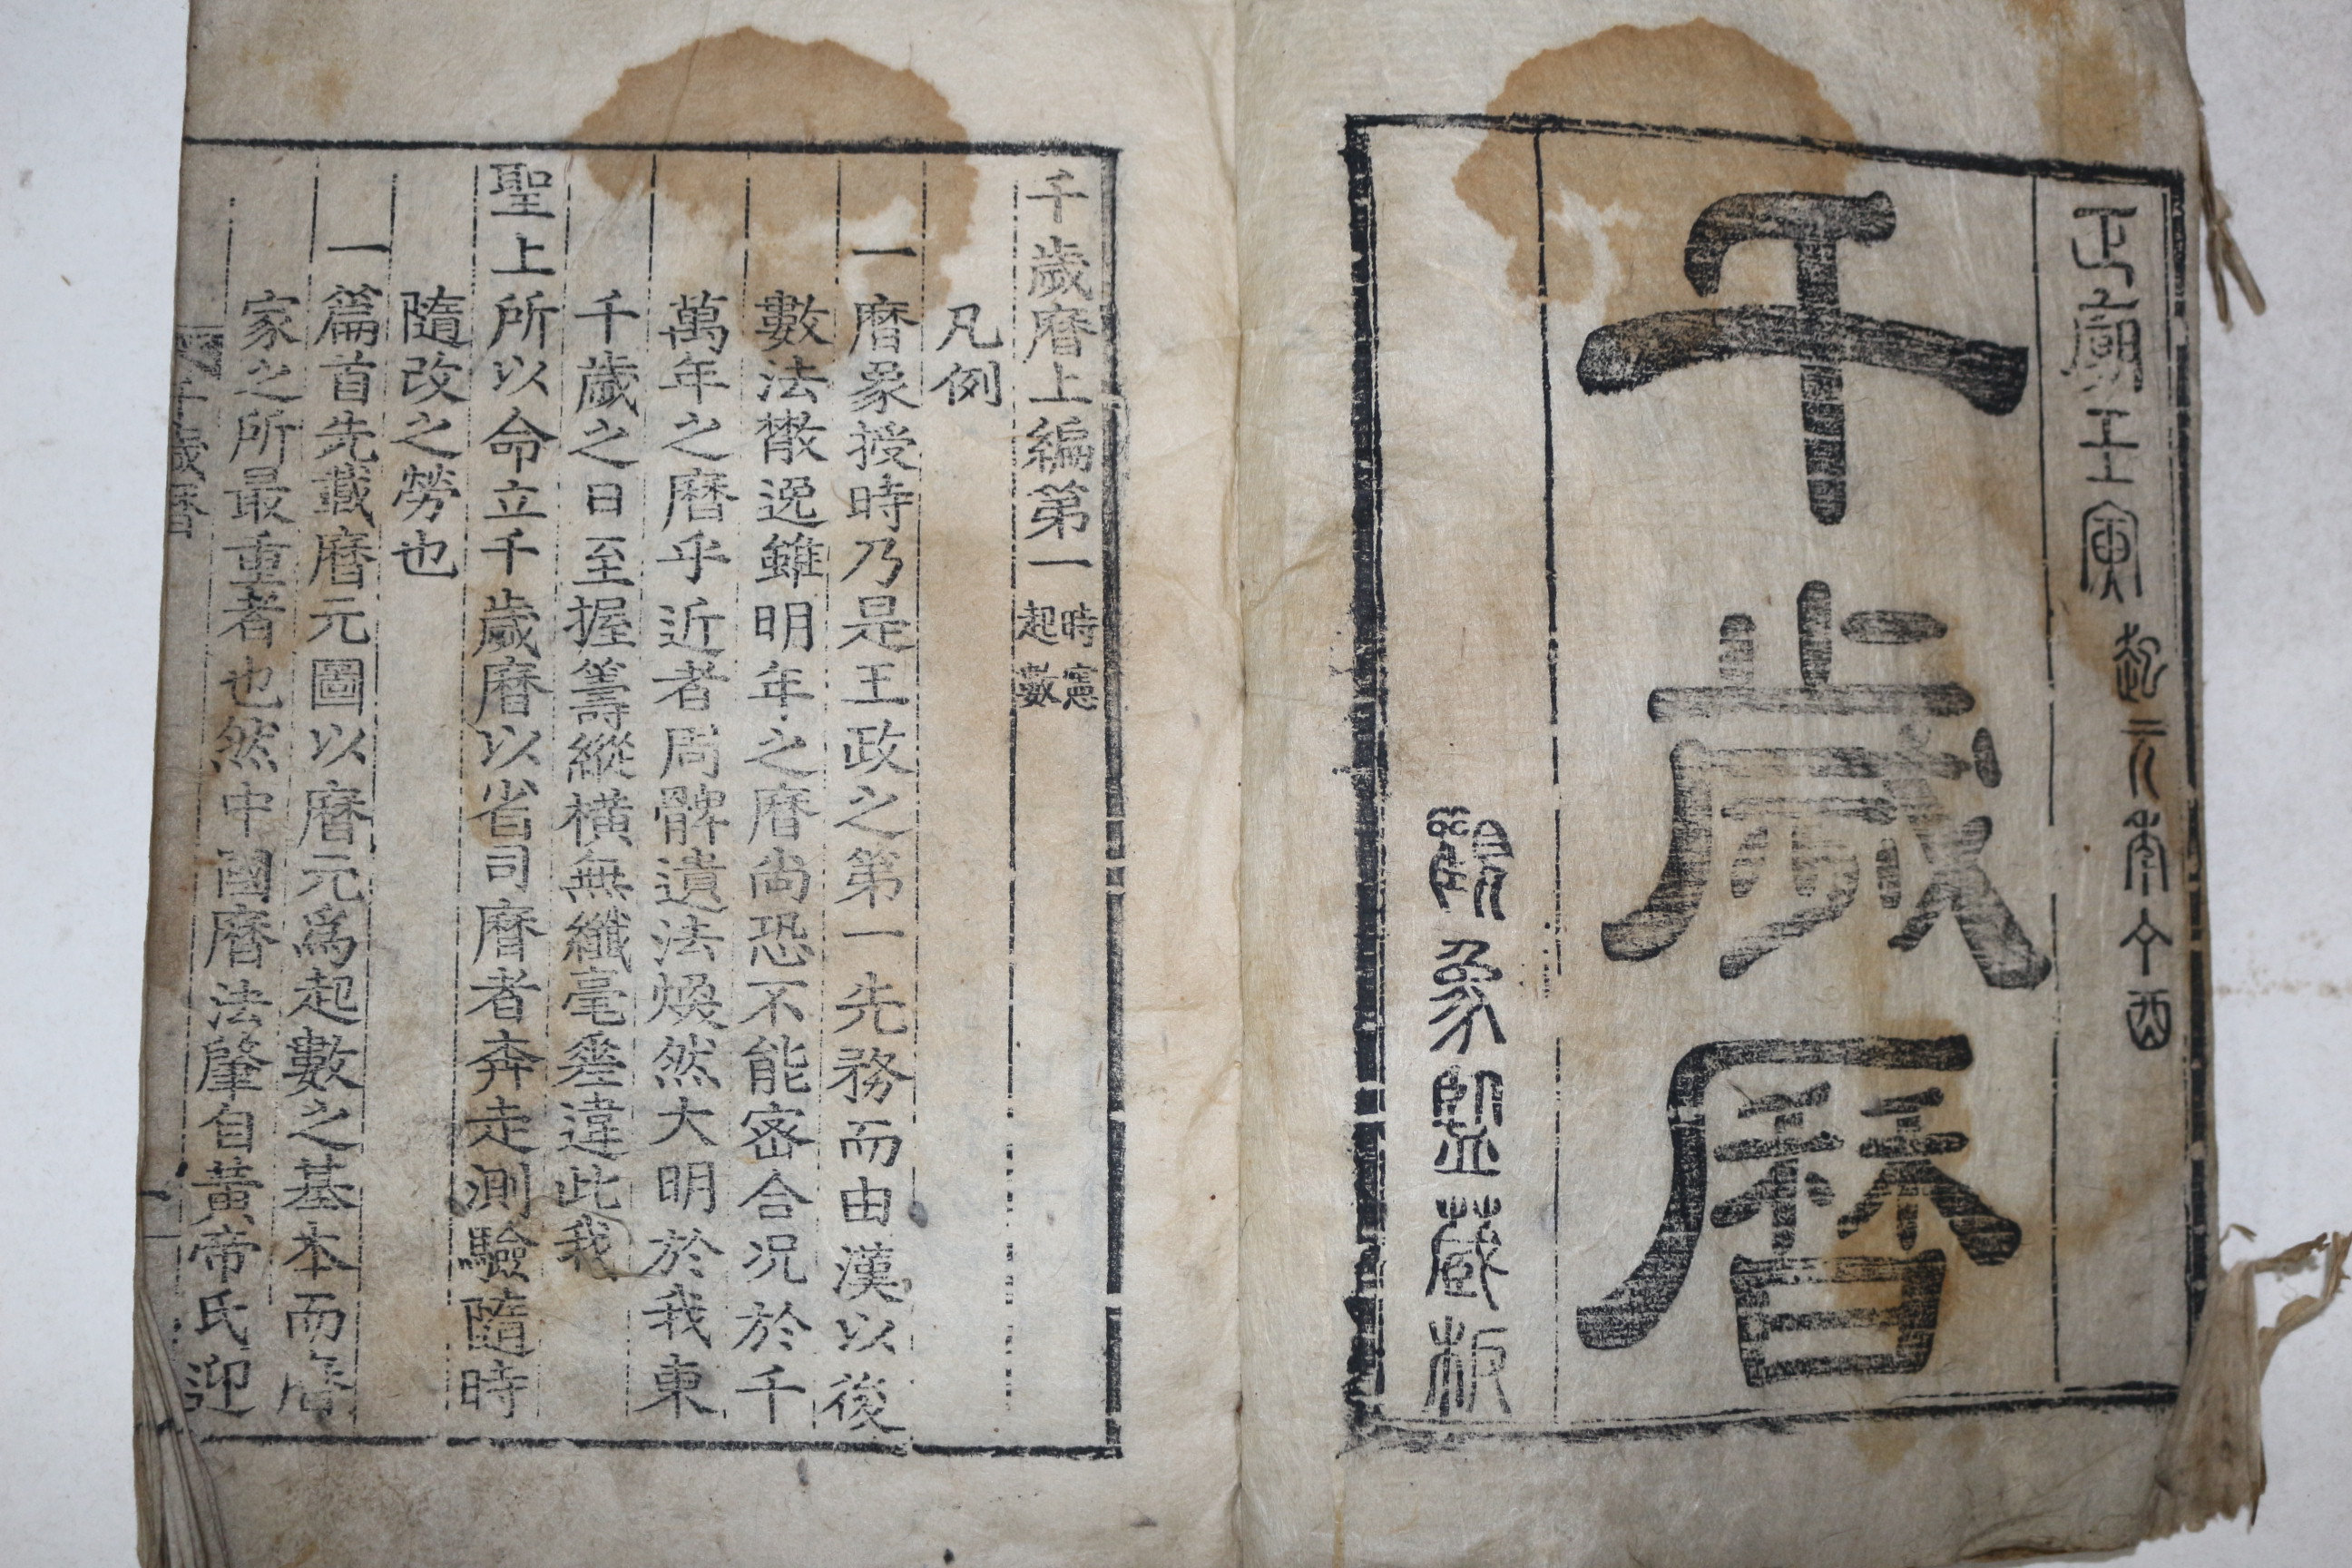 正廟壬寅起元本乙酉
千歲曆
觀象監蔵板
千歲曆上編第一 時憲起數
凡例
一曆象授時乃是王政之第一先務而由漢以後
數法散逸雖明年之曆尙恐不能密合况於千
萬年之曆乎近者周髀遺法煥然大明於我東
千歲之日至握籌縱橫無纖毫差違此我
聖上所以命立千歲曆以省司曆者奔走測驗隨時
隨改之勞也
一篇首先載曆元圖以曆元爲起數之基本而曆
家之所最重者也然中國曆法肇自黃帝氏迎
千歲曆